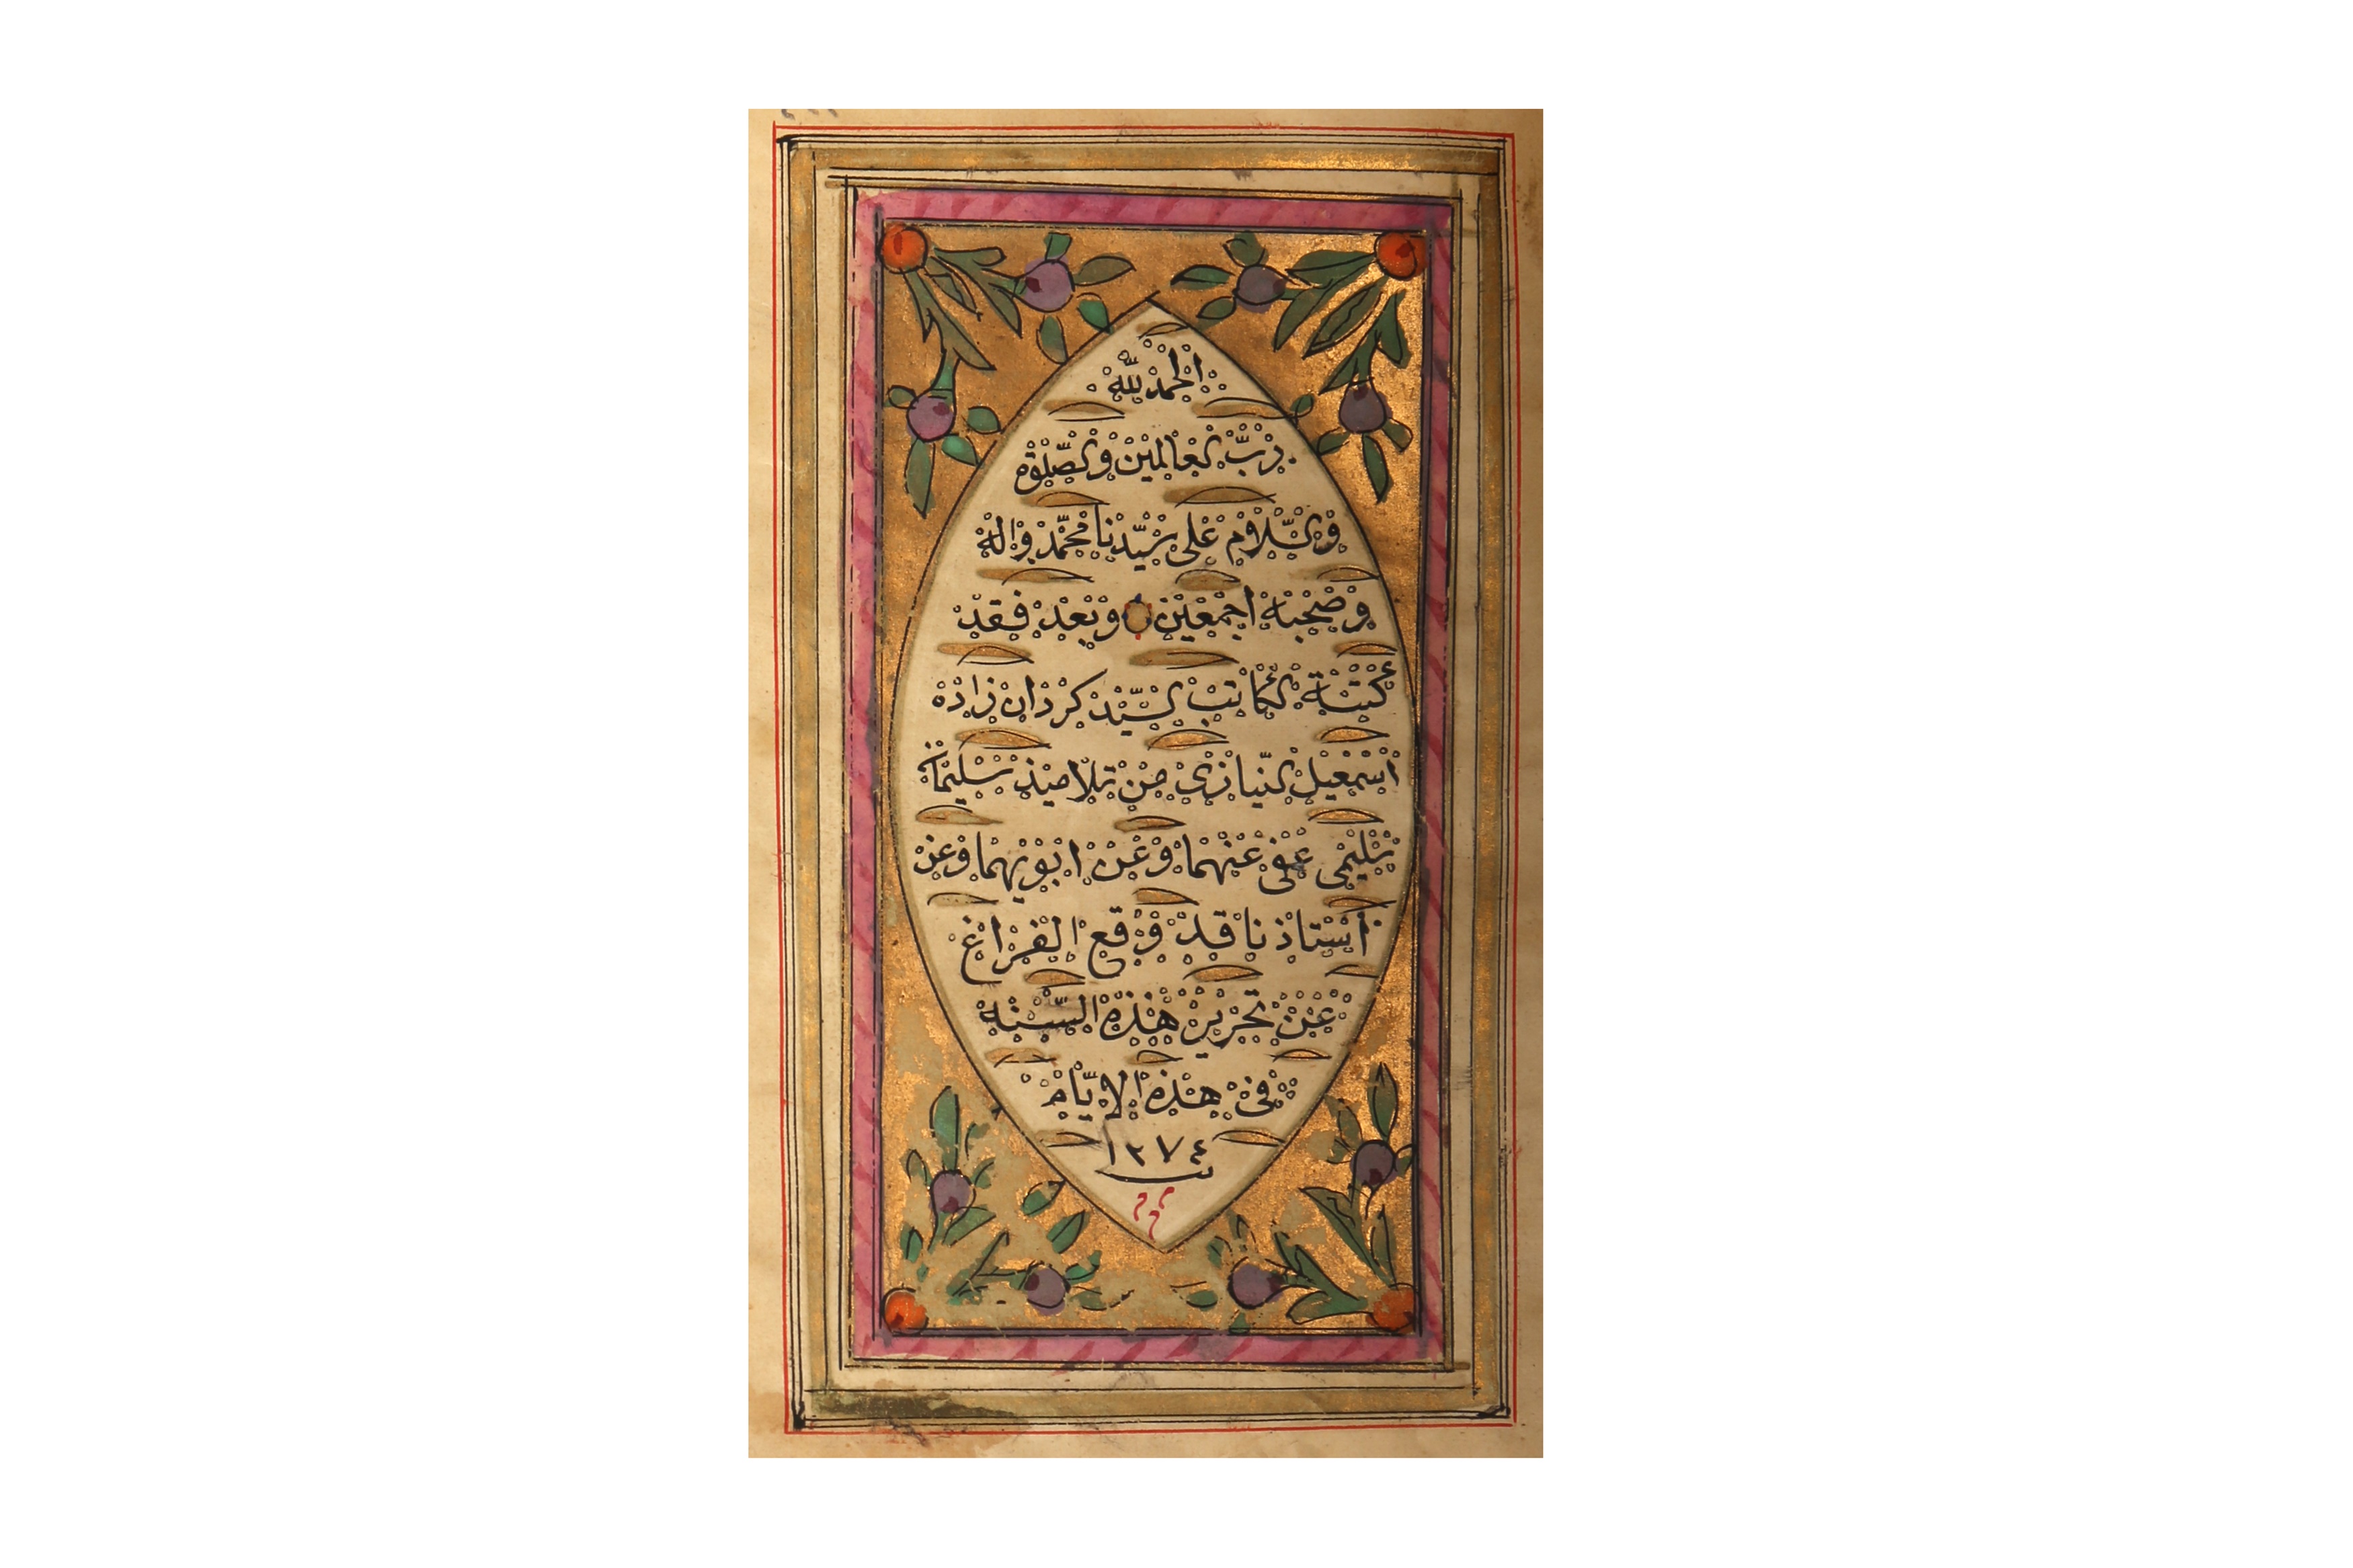 الحمد لله
رب العالمين والصلوة
والسلام على سيدنا محمد واله
وصحبه اجمعين وبعد فقد
كتبة الكاتب السيد كردان زاده
اسمعيل النيازى من تلاميذ سليمان
سليمى عفى عنهما وعن ابويهما وعن
استاذنا قد وقع الفراغ
عن تحرير هذه السنه
فى هذه الايام
١٢٧٤